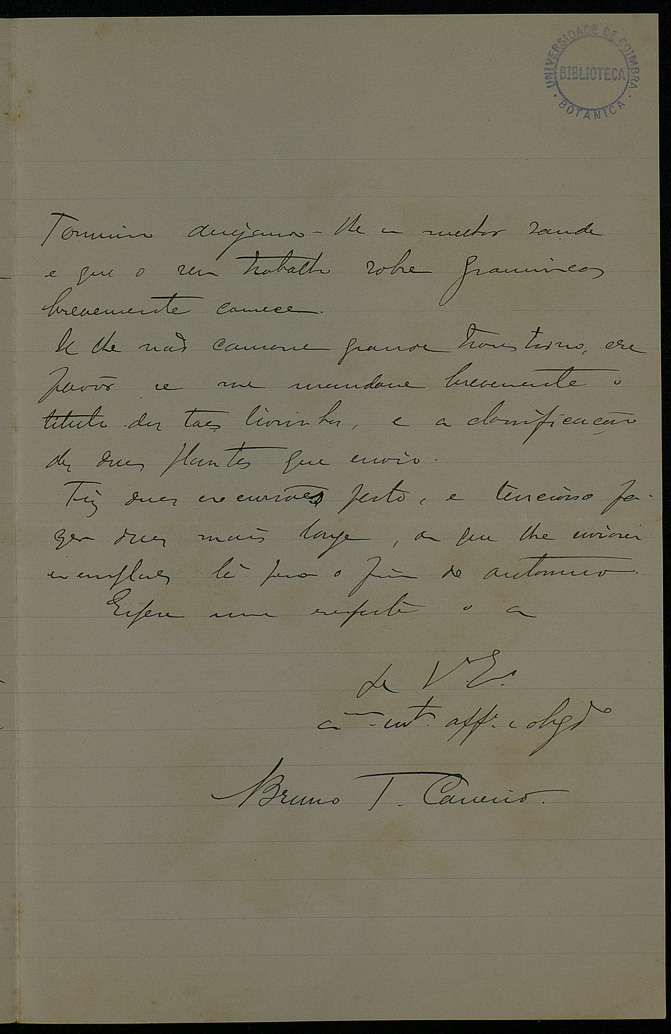 UNIVERSIDADE DE COIMBRA
BIBLIOTECA
BOTANICA
Termino desejando-lhe a melhor saude
e que o seu trabalho sobre gramineas
brevemente comece.
Se lhe não causar grande transtorno, era
favôr se me mandare brevemente o
titulo dos taes livrinhos, e a classificação
das duas plantas que envio.
Fiz duas excursões perto, e tenciono fa-
zer duas mais longe, de que lhe enviarei
exemplares lá para o fim do outomno.
Espera uma resposta o a
de V. E.
am.º att.º aff.º e obgdº
Bruno T. Carreiro.